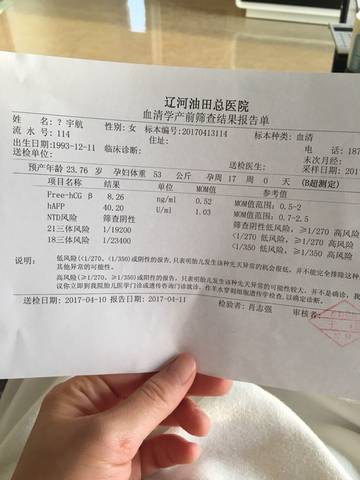 辽河油田总医院
血清学产前筛查结果报告单
姓 名：？宇航 性别：女 标本编号：20170413114 标本种类：血清
流 水 号：114 住址： 电 话：187
出生日期：1993-12-11 临床诊断： 末次月经：
送检单位： 送检医生： 采样日
预产年龄 23.76 岁 孕妇体重 53 公斤 孕周 17 周 0 天 (B超测定)
项目名称 结果 单位 MOM值 参考值
Free-hCG β 8.26 ng/ml 0.52 MOM值范围：0.5-2
hAFP 40.20 U/ml 1.03 MOM值范围：0.7-2.5
NTD风险 筛查阴性 筛查阴性低风险，
21三体风险 1/19200 <1/270 低风险，≥1/270 高风
18三体风险 1/23400 <1/350 低风险，≥1/350 高风
说明： 低风险(<1/270，<1/350)或阴性的报告，只表明胎儿发生该种先天异常的机会很低，并不能完全排除这种
其他异常的可能性。
高风险(≥1/270，≥1/350)或阳性的报告，只表明胎儿发生该种先天异常的可能性较大，并不是确诊，
议你立即到我院胎儿医学门诊或遗传咨询门诊就诊，作羊水穿刺细胞遗传学检查，以确定诊断。
送检日期：2017-04-10 报告日期：2017-04-11 检验者：肖志强 审核者：